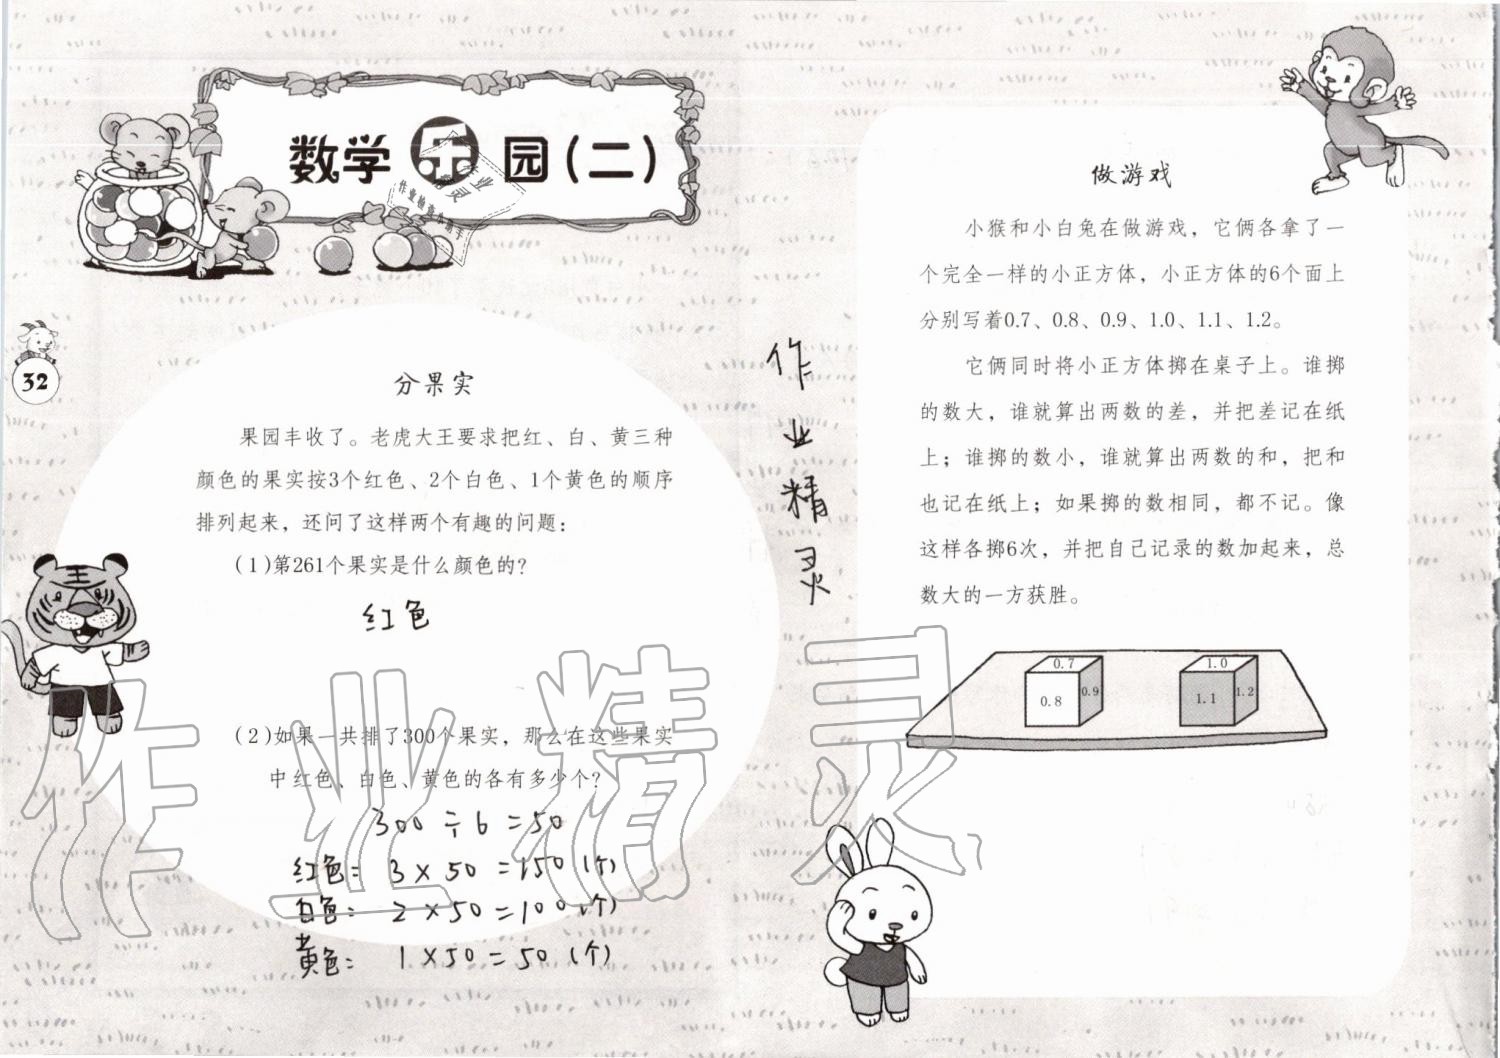 数学乐园(二)
32
分果实
果园丰收了。老虎大王要求把红、白、黄三种
颜色的果实按3个红色、2个白色、1个黄色的顺序
排列起来，还问了这样两个有趣的问题：
(1)第261个果实是什么颜色的?
红色
(2)如果一共排了300个果实，那么在这些果实
中红色、白色、黄色的各有多少个?
300÷6=50
红色：3×50=150(个)
白色：2×50=100(个)
黄色：1×50=50(个)
作业精灵
作业精灵
做游戏
小猴和小白兔在做游戏，它俩各拿了一
个完全一样的小正方体，小正方体的6个面上
分别写着0.7、0.8、0.9、1.0、1.1、1.2。
它俩同时将小正方体掷在桌子上。谁掷
的数大，谁就算出两数的差，并把差记在纸
上；谁掷的数小，谁就算出两数的和，把和
也记在纸上；如果掷的数相同，都不记。像
这样各掷6次，并把自己记录的数加起来，总
数大的一方获胜。
0.7
0.8
0.9
1.0
1.1
1.2